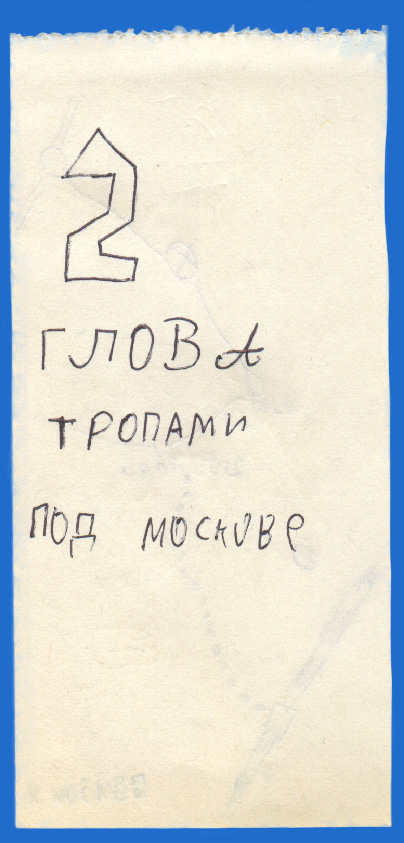 2
ГЛОВА
ТРОПАМИ
ПОД МОСКОВЕ